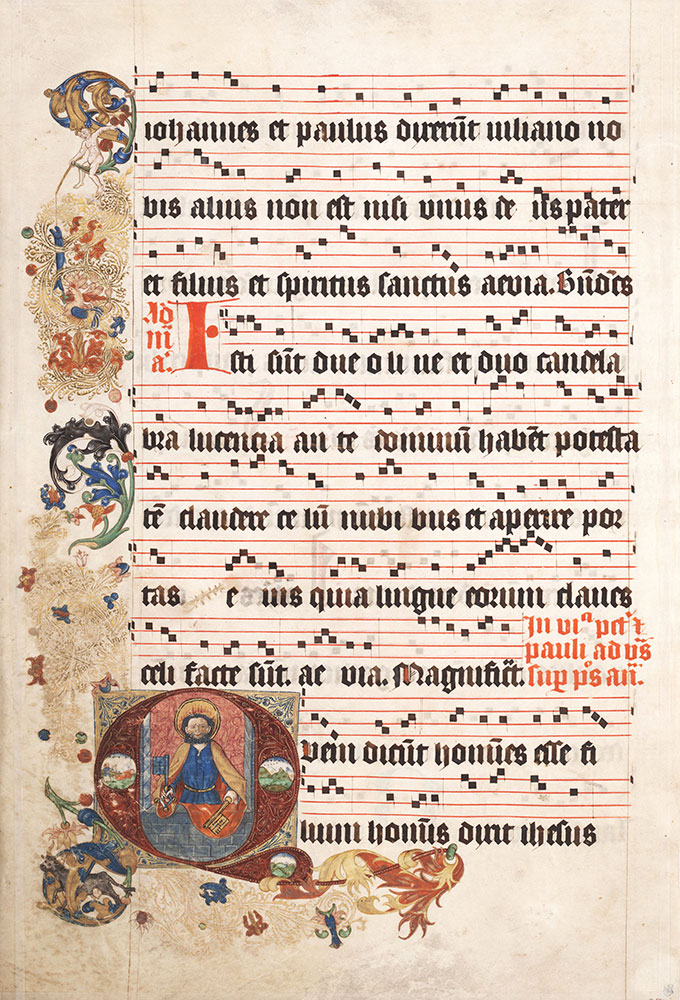 iohannes et paulus dixerūt iuliano no
bis alius non est nisi vnus de us pater
et filius et spiritus sanctus aevia. Gādētes
Ad m̄ a.
Isti sūt due o li ue et duo candela
bra lucencia an te dominum habēt potesta
tē claudere ce lū nubi bus et aperire por
tas e ius quia lingue eorum claues
celi facte sūt. ae via. Magnificat̄.
In viᵃ petʳ et
pauli ad vs̄
sup ps̄ an̄.
Quem dicūt homines esse fi
lium hominis dixit ihesus